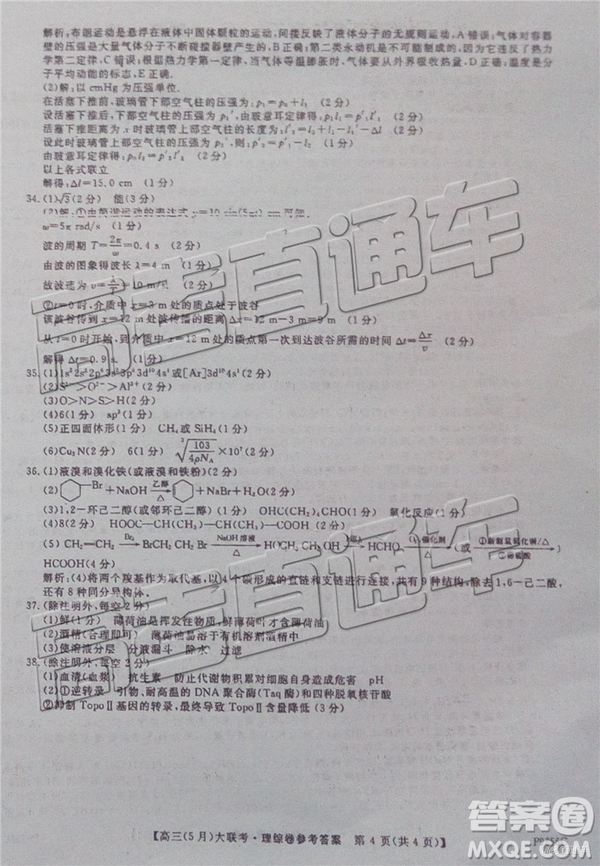 解析:布朗运动是悬浮在液体中固体颗粒的运动,不是液体分子的无规则运动,A 错误;气体对容器
壁的压强是大量气体分子不断碰撞器壁产生的,B 正确;第二类永动机是不可能制成的,因为它违反了热力
学第二定律,C 错误;根据热力学第一定律,当气体等温膨胀时,气体从外界吸收热量,D 正确;温度是分
子平均动能的标志,E 正确.
(2)解:以 cmHg 为压强单位.
在活塞下推前,玻璃管下部空气柱的压强为:p₁=p₀+l₂ (2分)
设活塞下推后,下部空气柱的压强为 p₁′,由玻意耳定律得:p₁l₁=p′₁l′₁ (2分)
活塞下推距离为 x 时玻璃管上部空气柱的长度为:l′₃=l₃+l₁-l′₁-Δl (1分)
设此时玻璃管上部空气柱的压强为 (1分)
由玻意耳定律得: (2分)
以上各式联立
解得:Δl=15.0 cm (1分)
34.(1)√3(2分) 能(3分)
(2)解:①由简谐运动的表达式 可知,
ω=5π rad/s (1分)
波的周期 T=2π/ω=0.4 s (2分)
由波的图象得波长 λ=4 m (1分)
故波速为 (1分)
②t=0 时,介质中 x=3 m 处的质点处于波谷
该波谷传到 x=12 m 处波传播的路程 Δx=12 m-3 m=9 m (1分)
从 t=0 时开始,到介质中 x=12 m 处的质点第一次到达波谷所需的时间 Δt=Δx/v (2分)
解得 Δt=0.9 s. (1分)
35.(1)1s²2s²2p⁶3s²3p⁶3d¹⁰4s¹或[Ar]3d¹⁰4s¹(2分)
(2)S²⁻>O²⁻>Al³⁺(2分)
(3)O>N>S>H(2分)
(4)6(1分) sp³(1分)
(5)正四面体形(1分) CH₄ 或 SiH₄(1分)
(6)Cu₃N(2分) 6(1分) ∛(103/4ρN_A)(2分)
36.(1)液溴和溴化铁(或液溴和铁粉)(2分)
(2) —Br+NaOH 乙醇 △ +NaBr+H₂O(2分)
(3)1,2-环己二醇(或邻环己二醇)(1分) OHC(CH₂)₄CHO(1分) 氧化反应(1分)
(4)8(2分) HOOC—CH(CH₃)—CH(CH₃)—COOH(2分)
(5)CH₂=CH₂ Br₂ BrCH₂CH₂Br NaOH溶液 △ HCHO (或
HCOOH)(4分)
解析:(4)将两个羧基作为取代基,以4个碳形成的直链和支链进行连接,共有9种结构,除去1,6-己二酸,
还有8种同分异构体.
37.(除注明外,每空2分)
(1)鲜(1分) 薄荷油是挥发性物质,鲜薄荷叶才含薄荷油
(2)酒精(合理即可) 薄荷油易溶于有机溶剂酒精中
(3)使溶液分层 分液漏斗 除水 过滤
38.(除注明外,每空2分)
(1)血清(血浆) 抗生素 防止代谢物积累对细胞自身造成危害 pH
(2)①逆转录 引物、耐高温的 DNA 聚合酶(Taq 酶)和四种脱氧核苷酸
②抑制 Topo Ⅱ 基因的转录,最终导致 Topo Ⅱ 含量降低(3分)
高三直通车
【高三(5月)大联考·理综卷参考答案 第 4 页(共 4 页)】
答案圈
MXQE.COM